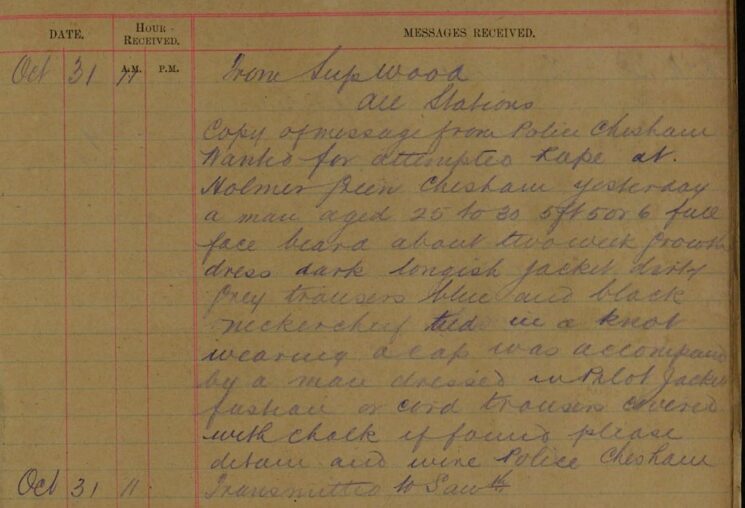 DATE. HOUR RECEIVED. MESSAGES RECEIVED.
A.M. P.M.
Oct 31 11 From Sup Wood
All Stations
Copy of message from Police Chesham
Wanted for attempted Rape at
Holmer Green Chesham yesterday
a man aged 25 to 30 5ft 5 or 6 full
face beard about two week growth
dress dark longish Jacket dirty
Grey trousers blue and black
neckercheif tied in a knot
wearing a cap was accompanied
by a man dressed in Pilot Jacket
fushan or cord trousers covered
with chalk if found please
detain and wire Police Chesham
Oct 31 11 Transmitted to